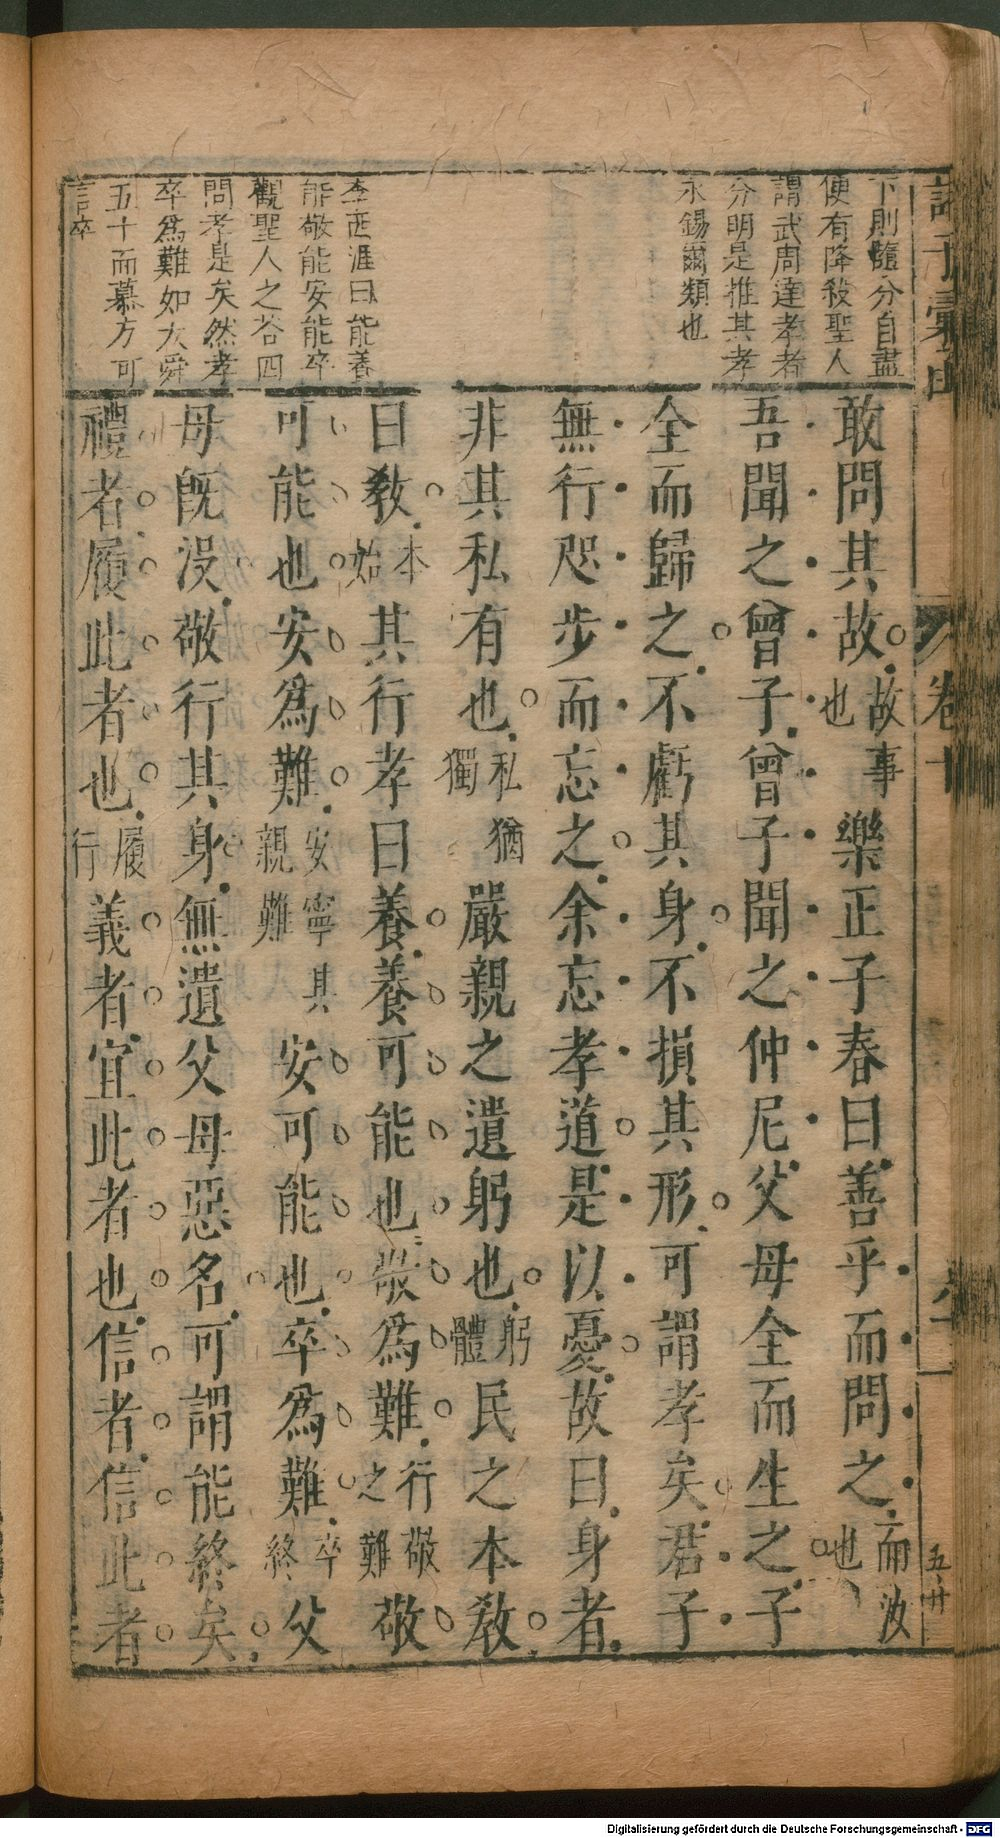 下則隨分自盡
便有降殺聖人
謂武周達孝者
分明是推其孝
永錫爾類也
李西涯曰能養
能敬能安能卒
觀聖人之荅四
問孝是矣然孝
卒爲難如大舜
五十而慕方可
言卒
敢問其故故事也樂正子春曰善乎而問之而汝也
吾聞之曾子曾子聞之仲尼父母全而生之子
全而歸之不虧其身不損其形可謂孝矣君子
無行咫步而忘之余忘孝道是以憂故曰身者
非其私有也私猶獨嚴親之遺躬也躬體民之本教
曰教本始其行孝曰養養可能也敬爲難行敬之難敬
可能也安爲難安寧其親難安可能也卒爲難卒終父
母既没敬行其身無遺父母惡名可謂能終矣
禮者履此者也履行義者宜此者也信者信此者
卷十
五廿
Digitalisierung gefördert durch die Deutsche Forschungsgemeinschaft - DFG